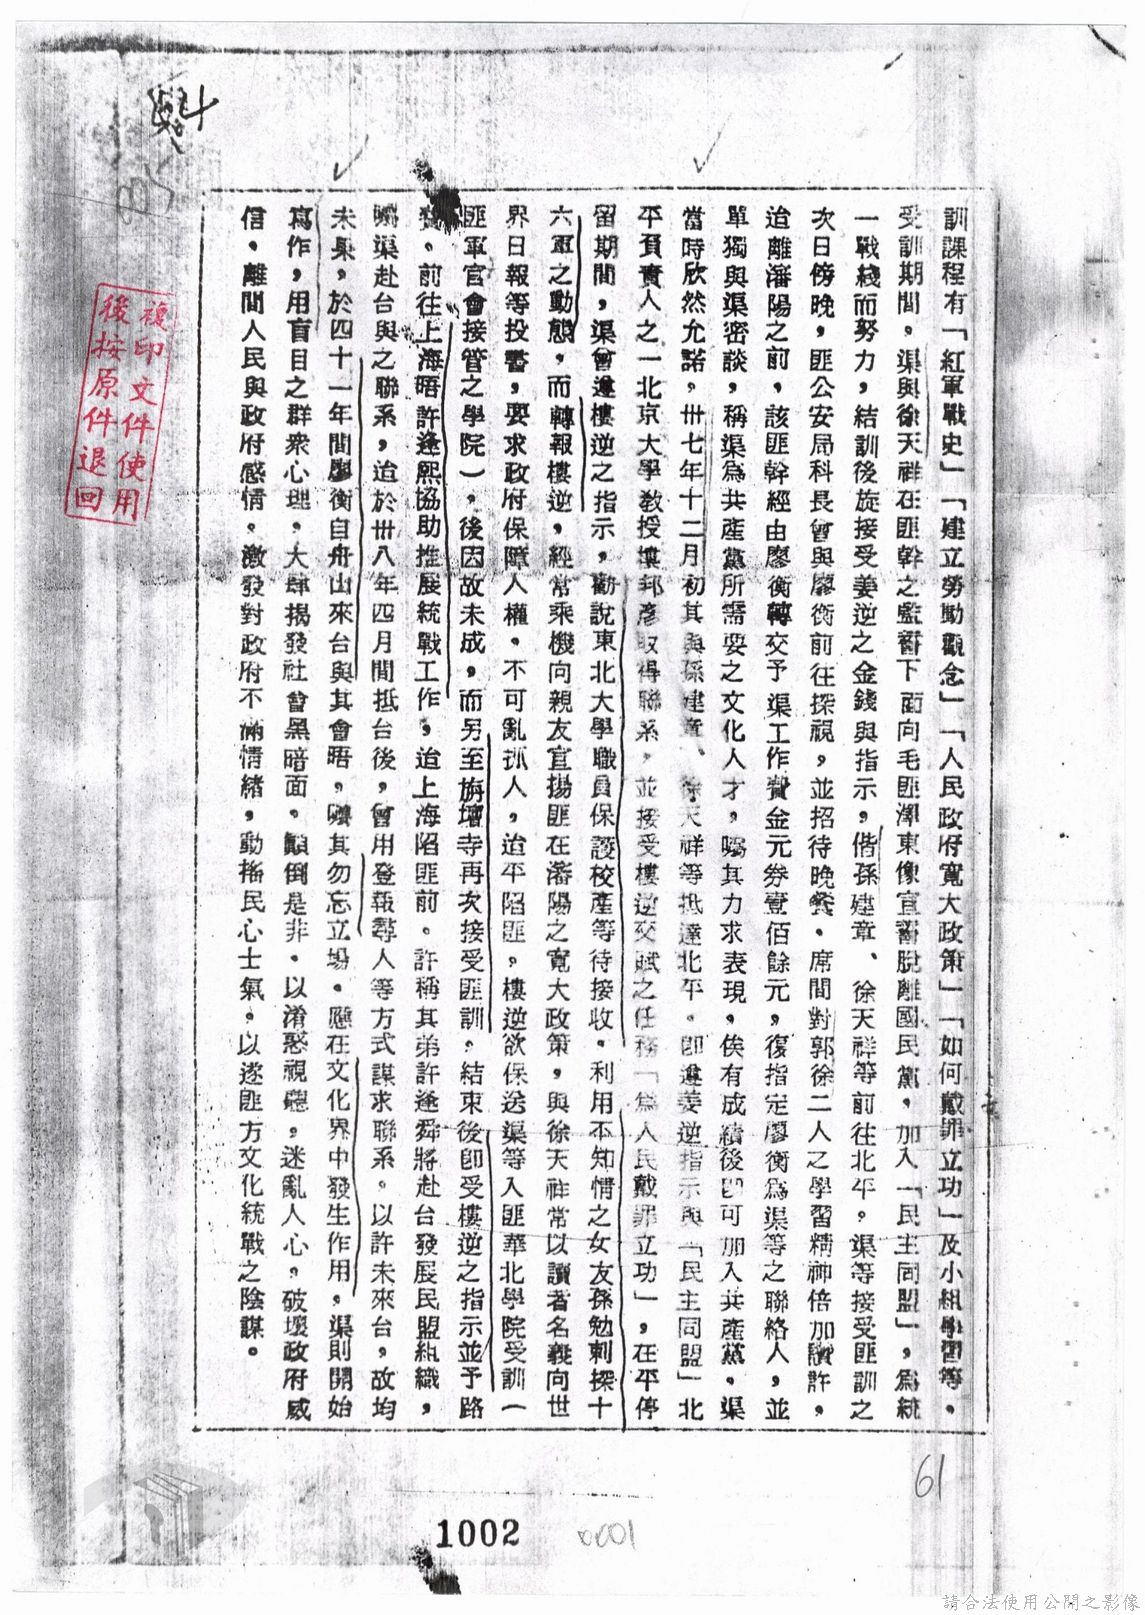 訓課程有「紅軍戰史」「建立勞動觀念」「人民政府寬大政策」「如何戴罪立功」及小組學習等，
受訓期間，渠與徐天祥在匪幹之監審下面向毛匪澤東像宣誓脫離國民黨，加入「民主同盟」，為統
一戰綫而努力，結訓後旋接受姜逆之金錢與指示，偕孫建章、徐天祥等前往北平。渠等接受匪訓之
次日傍晚，匪公安局科長曾與廖衡前往探視，並招待晚餐。席間對郭徐二人之學習精神倍加讚許，
迨離瀋陽之前，該匪幹經由廖衡轉交予渠工作費金元券壹佰餘元，復指定廖衡為渠等之聯絡人，並
單獨與渠密談，稱渠為共產黨所需要之文化人才，囑其力求表現，俟有成績後即可加入共產黨。渠
當時欣然允諾。卅七年十二月初其與孫建章、徐天祥等抵達北平。即遵姜逆指示與「民主同盟」北
平負責人之一北京大學教授樓邦彥取得聯系，並接受樓逆交賦之任務「為人民戴罪立功」，在平停
留期間，渠曾遵樓逆之指示，勸說東北大學職員保護校產等待接收。利用不知情之女友孫勉刺探十
六軍之動態，而轉報樓逆，經常乘機向親友宣揚匪在瀋陽之寬大政策，與徐天祥常以讀者名義向世
界日報等投書，要求政府保障人權，不可亂抓人，迨平陷匪。樓逆欲保送渠等入匪華北學院受訓（
匪軍官會接管之學院）。後因故未成，而另至旃壇寺再次接受匪訓。結束後即受樓逆之指示並予路
費，前往上海晤許逢熙協助推展統戰工作，迨上海陷匪前。許稱其弟許逢舜將赴台發展民盟組織，
囑渠赴台與之聯系，迨於卅八年四月間抵台後，曾用登報尋人等方式謀求聯系。以許未來台，故均
未果，於四十一年間廖衡自舟山來台與其會晤，囑其勿忘立場。應在文化界中發生作用，渠則開始
寫作，用盲目之群衆心理，大肆揭發社會黑暗面。顛倒是非。以淆惑視聽，迷亂人心。破壞政府威
信，離間人民與政府感情。激發對政府不滿情緒，動搖民心士氣，以遂匪方文化統戰之陰謀。
複印文件使用
後按原件退回
61
1002
請合法使用公開之影像